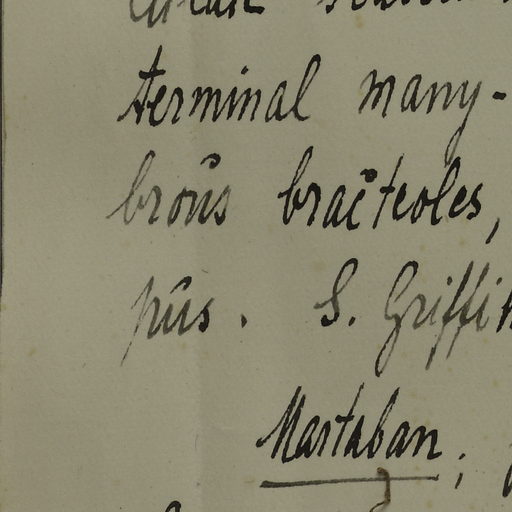 terminal many-
broûs bracteoles,
pûs. S. Griffi
Martaban;